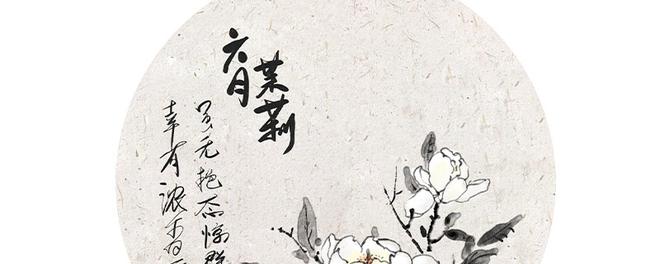 六月
茉莉
虽无艳态惊群
幸有浓香